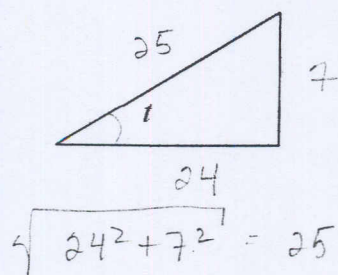 25
t
7
24
√(24² + 7²) = 25